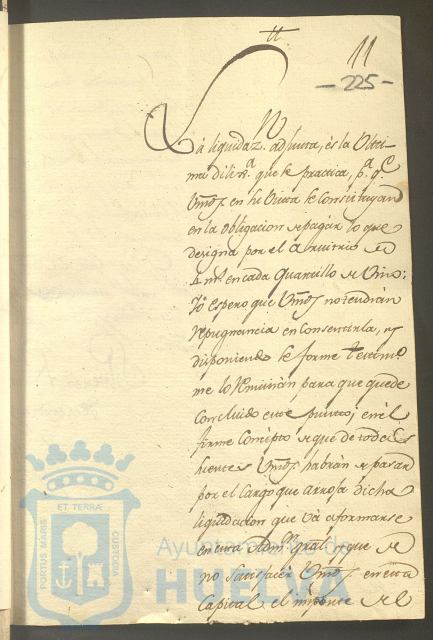 tt
11
- 225 -
La liquidaz.n adjunta, es la Ulti-
ma dilix.a que se practica, p.a q.e
Vmds en su Vista se Constituyan
en la obligacion de pagar lo que
designa por el Arvitrio de
4 mrs en cada Quartillo de Vino;
Yo espero que Vmds no tendrán
repugnancia en Consentirla, y
disponiendo se forme testim.o
me lo Remitirán para que quede
Concluido este punto; en el
firme Concepto de que de todas
suertes Vmds habrán de pasar
por el Cargo que arroja dicha
liquidacion que vá á formarse
en esta Adm.n Gral, y que de
no Satisfacer Vmds en esta
Capital el importe de el
PORTUS MARIS
ET TERRAE
CUSTODIA
Ayuntamiento de
HUELVA